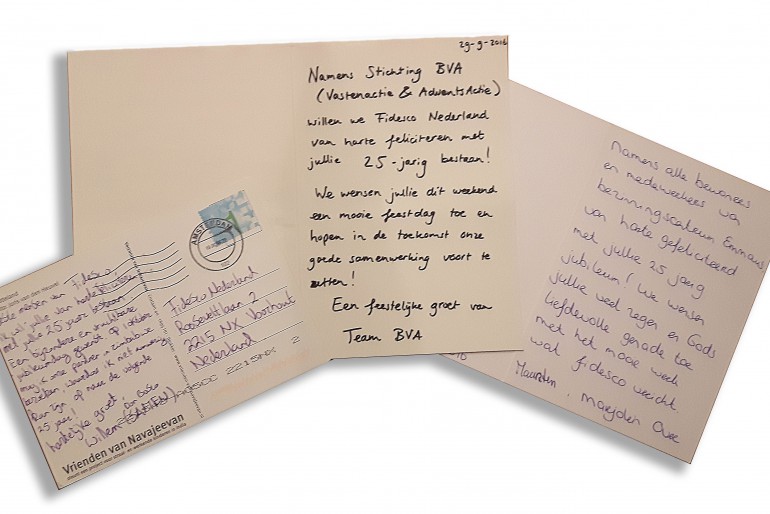 29-9-2016
Namens Stichting BVA
(Vastenactie & AdventsActie)
willen we Fidesco Nederland
van harte feliciteren met
jullie 25-jarig bestaan!
We wensen jullie dit weekend
een mooie feestdag toe en
hopen in de toekomst onze
goede samenwerking voort te
zetten!
Een feestelijke groet van
Team BVA
Namens alle bewoners
en medewerkers van
bezinningscentrum Emmaus
van harte gefeliciteerd
met jullie 25 jarig
jubileum! We wensen
jullie veel zegen en Gods
liefdevolle genade toe
met het mooie werk
wat Fidesco verricht
Maarten, Marjolein
AMSTERDAM
Fidesco Nederland
Rooseveltlaan 2
2215 NX Voorhout
Nederland
2215NX 2
mensen van Fidesco,
jullie van harte
met jullie 25 jarig bestaan
Een bijzondere en vruchtbare
gewenst op
onze partner in Zimbabwe
bezoeken,
Zijn op naar de volgende
25 jaar!
hartelijke groet, Don Bosco
Willem
Vrienden van Navajeevan